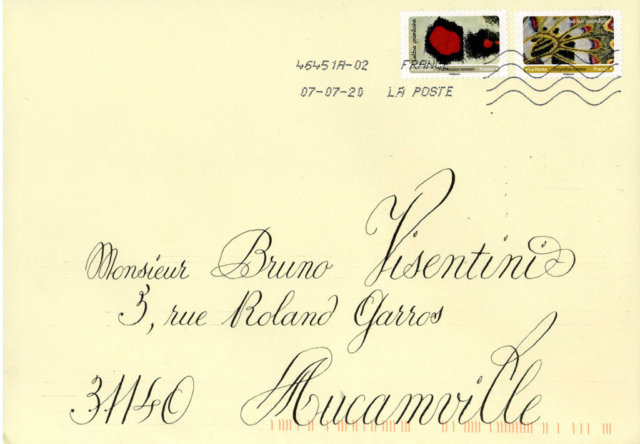 46451A-02 FRANCE
07-07-20 LA POSTE
Monsieur Bruno Visentini
5, rue Roland Garros
31140 Aucamville